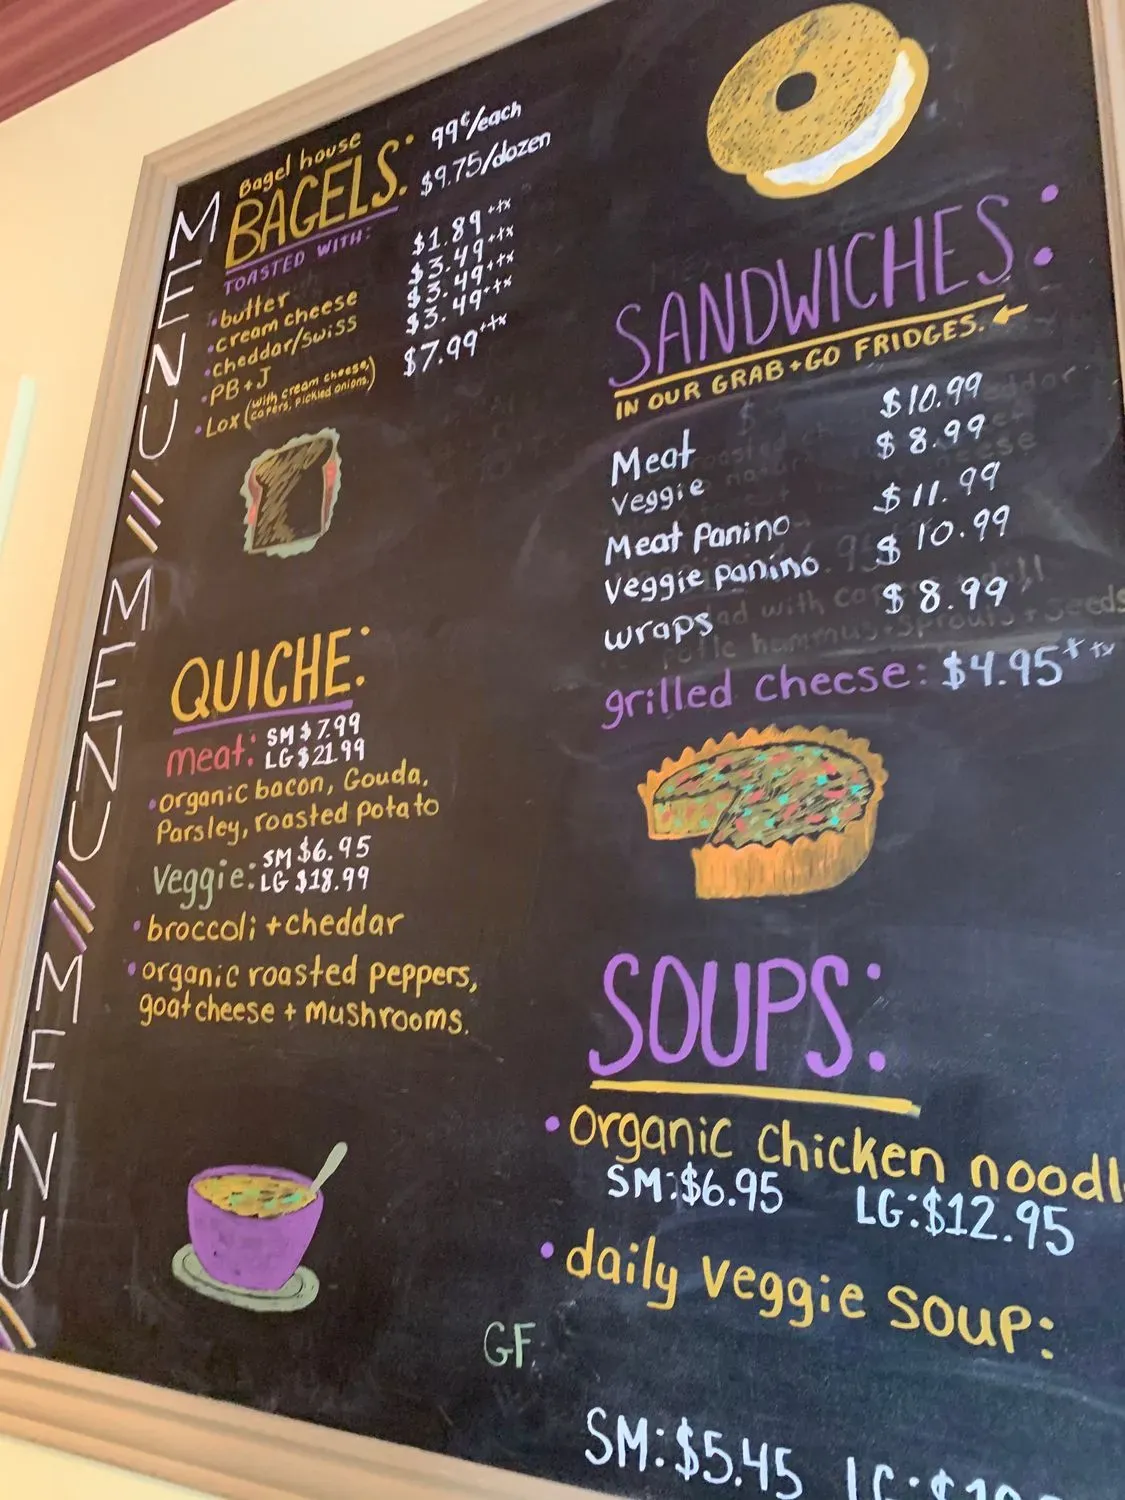 MENU
MENU
MENU
Bagel house
BAGELS: 99¢/each
$9.75/dozen
TOASTED WITH:
• butter $1.89 +tx
• cream cheese $3.49 +tx
• cheddar/swiss $3.49 +tx
• PB + J $3.49 +tx
• Lox (with cream cheese, capers, pickled onions,) $7.99 +tx
QUICHE:
meat: SM $7.99
LG $21.99
• organic bacon, Gouda,
Parsley, roasted potato
veggie: SM $6.95
LG $18.99
• broccoli + cheddar
• organic roasted peppers,
goat cheese + mushrooms.
SANDWICHES:
IN OUR GRAB + GO FRIDGES.
Meat $10.99
veggie $8.99
Meat Panino $11.99
veggie panino $10.99
wraps $8.99
grilled cheese: $4.95 + tx
SOUPS:
• organic chicken noodl
SM: $6.95 LG: $12.95
• daily veggie soup:
GF
SM: $5.45